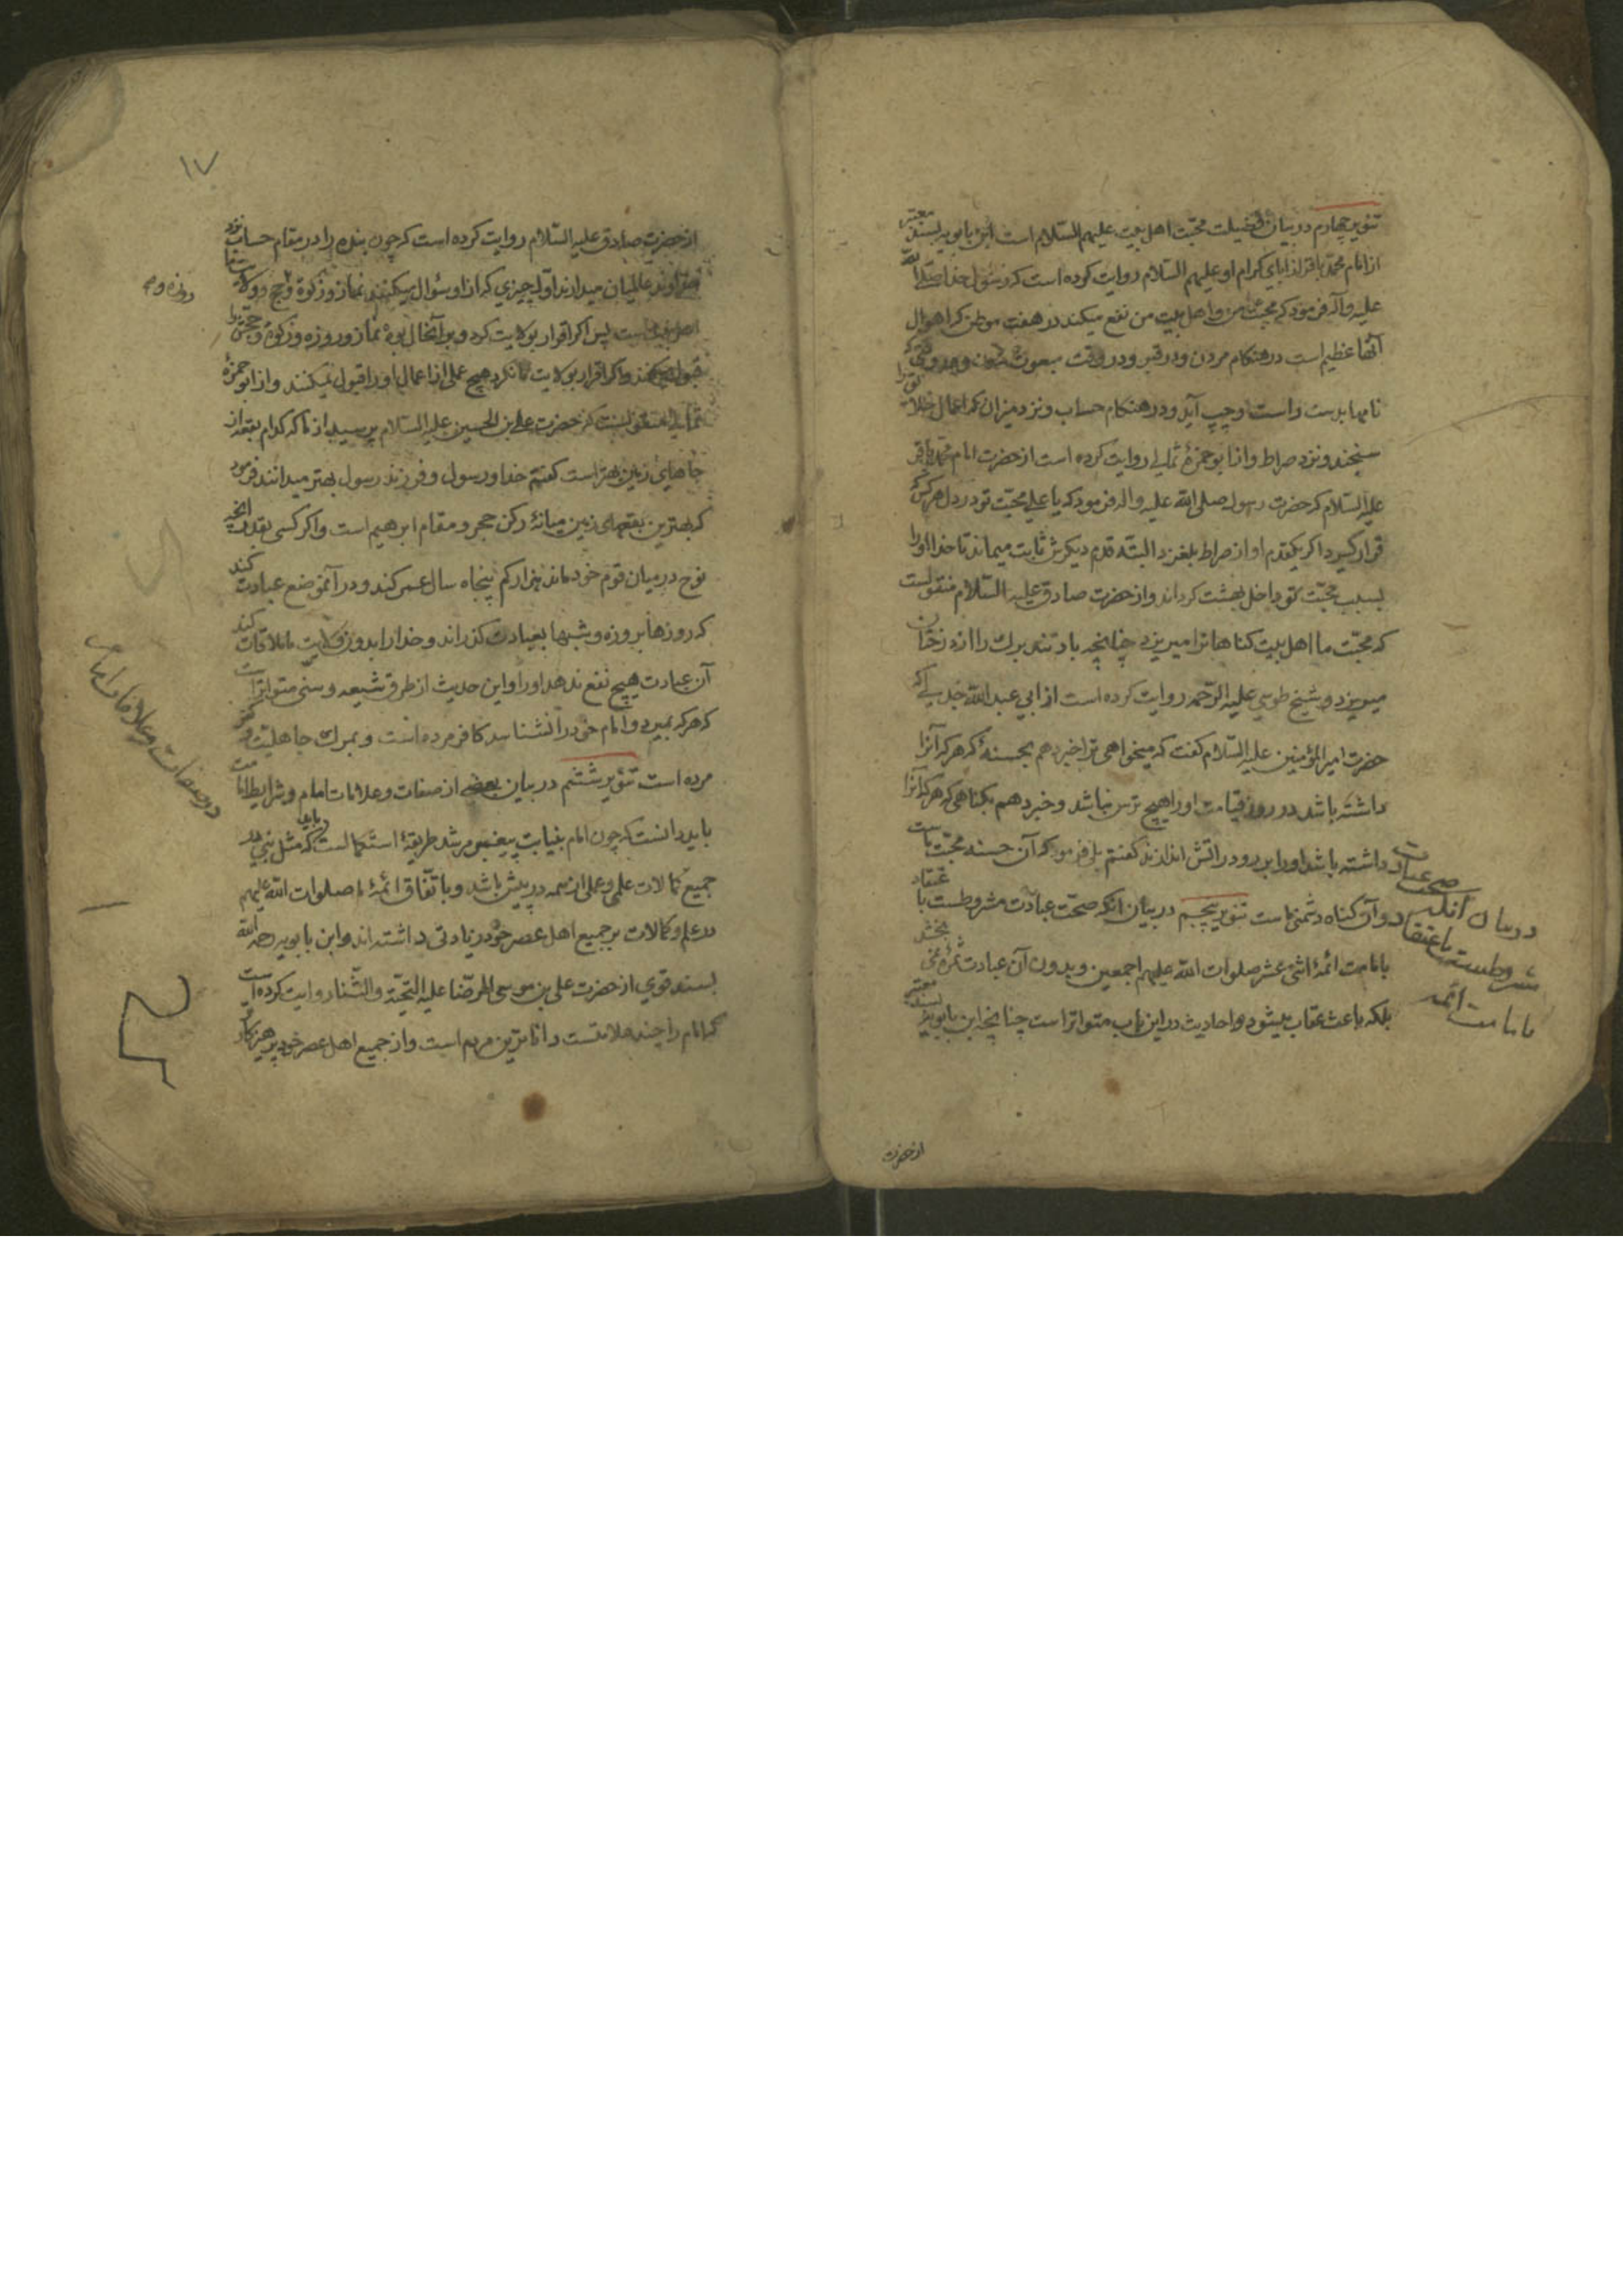 تنویر چهارم در بیان فضیلت محبّت اهل بیت علیهم السّلام است ابن بابویه بسند معتبر
از امام محمّد باقر از ابای کرام او علیهم السّلام روایت کرده است که رسول خدا صلّی اللّه
علیه و آله فرمود که محبّت من و اهل بیت من نفع میکند در هفت موطن که اهوال
آنها عظیم است در هنگام مردن و در قبر و در وقت مبعوث شدن و در وقتی که
نامها بدست راست و چپ آید و در هنگام حساب و نزد میزان که اعمال خلایق را
سنجند و نزد صراط و از ابو حمزهٔ ثمالی روایت کرده است از حضرت امام محمّد باقر
علیه السّلام که حضرت رسول صلی اللّه علیه و اله فرمود که یا علی محبّت تو در دل هر کس که
قرار گیرد اگر یکقدم او از صراط بلغزد البتّه قدم دیگرش ثابت میماند تا خدا او را
بسبب محبّت تو داخل بهشت گرداند و از حضرت صادق علیه السّلام منقولست
که محبّت ما اهل بیت گناهانرا میریزد چنانچه باد تند برگ را از درختان
میریزد و شیخ طوسی علیه الرّحمه روایت کرده است از ابی عبد اللّه جدلی که
حضرت امیر المؤمنین علیه السّلام گفت که میخواهی ترا خبر دهم بحسنهٔ که هر که آنرا
داشته باشد در روز قیامت او را هیچ ترس نباشد و خبر دهم بگناهی که هر که آنرا
داشته باشد او را برو در اتش اندازند گفتم بلی فرمود که آن حسنه محبّت ماست
و آن گناه دشمنی ماست تنویر پنجم در بیان انکه صحّت عبادت مشروطست با عتقاد
بامامت ائمّهٔ اثنی عشر صلوات اللّه علیهم اجمعین و بدون آن عبادت ثمره نمی بخشد
بلکه باعث عقاب میشود و احادیث در این باب متواتر است چنانچه ابن بابویه بسند معتبر
در بیان آنکه صحت عبادت
مشروطست باعتقاد
بامامت ائمه
از حضرت
۱۷
از حضرت صادق علیه السّلام روایت کرده است که چون بنده را در مقام حساب نزد
خداوند عالمیان میدارند اوّل چیزی که از او سئوال میکنند نماز و زکوة و حج و ولایت ما
اهل بیت است پس اگر اقرار بولایت کرد و بر آنحال بوده نماز و روزه و زکوة و حجّش را
قبول میکنند و اگر اقرار بولایت ما نکرد هیچ عملی از اعمال او را قبول نمیکنند و از ابو حمزهٔ
ثمالی منقولست که حضرت علی بن الحسین علیه السّلام پرسید از ما که کدام بقعه از
جاهای زمین بهتر است گفتم خدا و رسول و فرزند رسول بهتر میدانند فرمود
که بهترین بقعهای زمین میانهٔ رکن حجر و مقام ابرهیم است و اگر کسی بقدر انچه
نوح در میان قوم خود ماند هزار کم پنجاه سال عمر کند و در آنموضع عبادت کند
که روزها بروزه و شبها بعبادت گذراند و خدا را بدون ولایت ما ملاقات کند
آن عبادت هیچ نفع ندهد او را و این حدیث از طرق شیعه و سنّی متواتر است
که هر که بمیرد و امام خود را نشناسد کافر مرده است و بمرگ جاهلیّت و کفر
مرده است تنویر ششم در بیان بعضی از صفات و علامات امام و شرایط امامت
باید دانست که چون امام بنیابت پیغمبر مرشد طریقهٔ استکمالست باید که مثل نبی در
جمیع کمالات علمی و عملی از همه در پیش باشد و باتّفاق ائمّهٔ ما صلوات اللّه علیهم
در علم و کمالات بر جمیع اهل عصر خود زیادتی داشته اند و ابن بابویه رحمه اللّه
بسند قوی از حضرت علی بن موسی الرّضا علیه التّحیّة و الثّنا روایت کرده است
که امام را چند علامتست داناترین مردم است و از جمیع اهل عصر خود پرهیزکار تر
در صفات و علامات امام